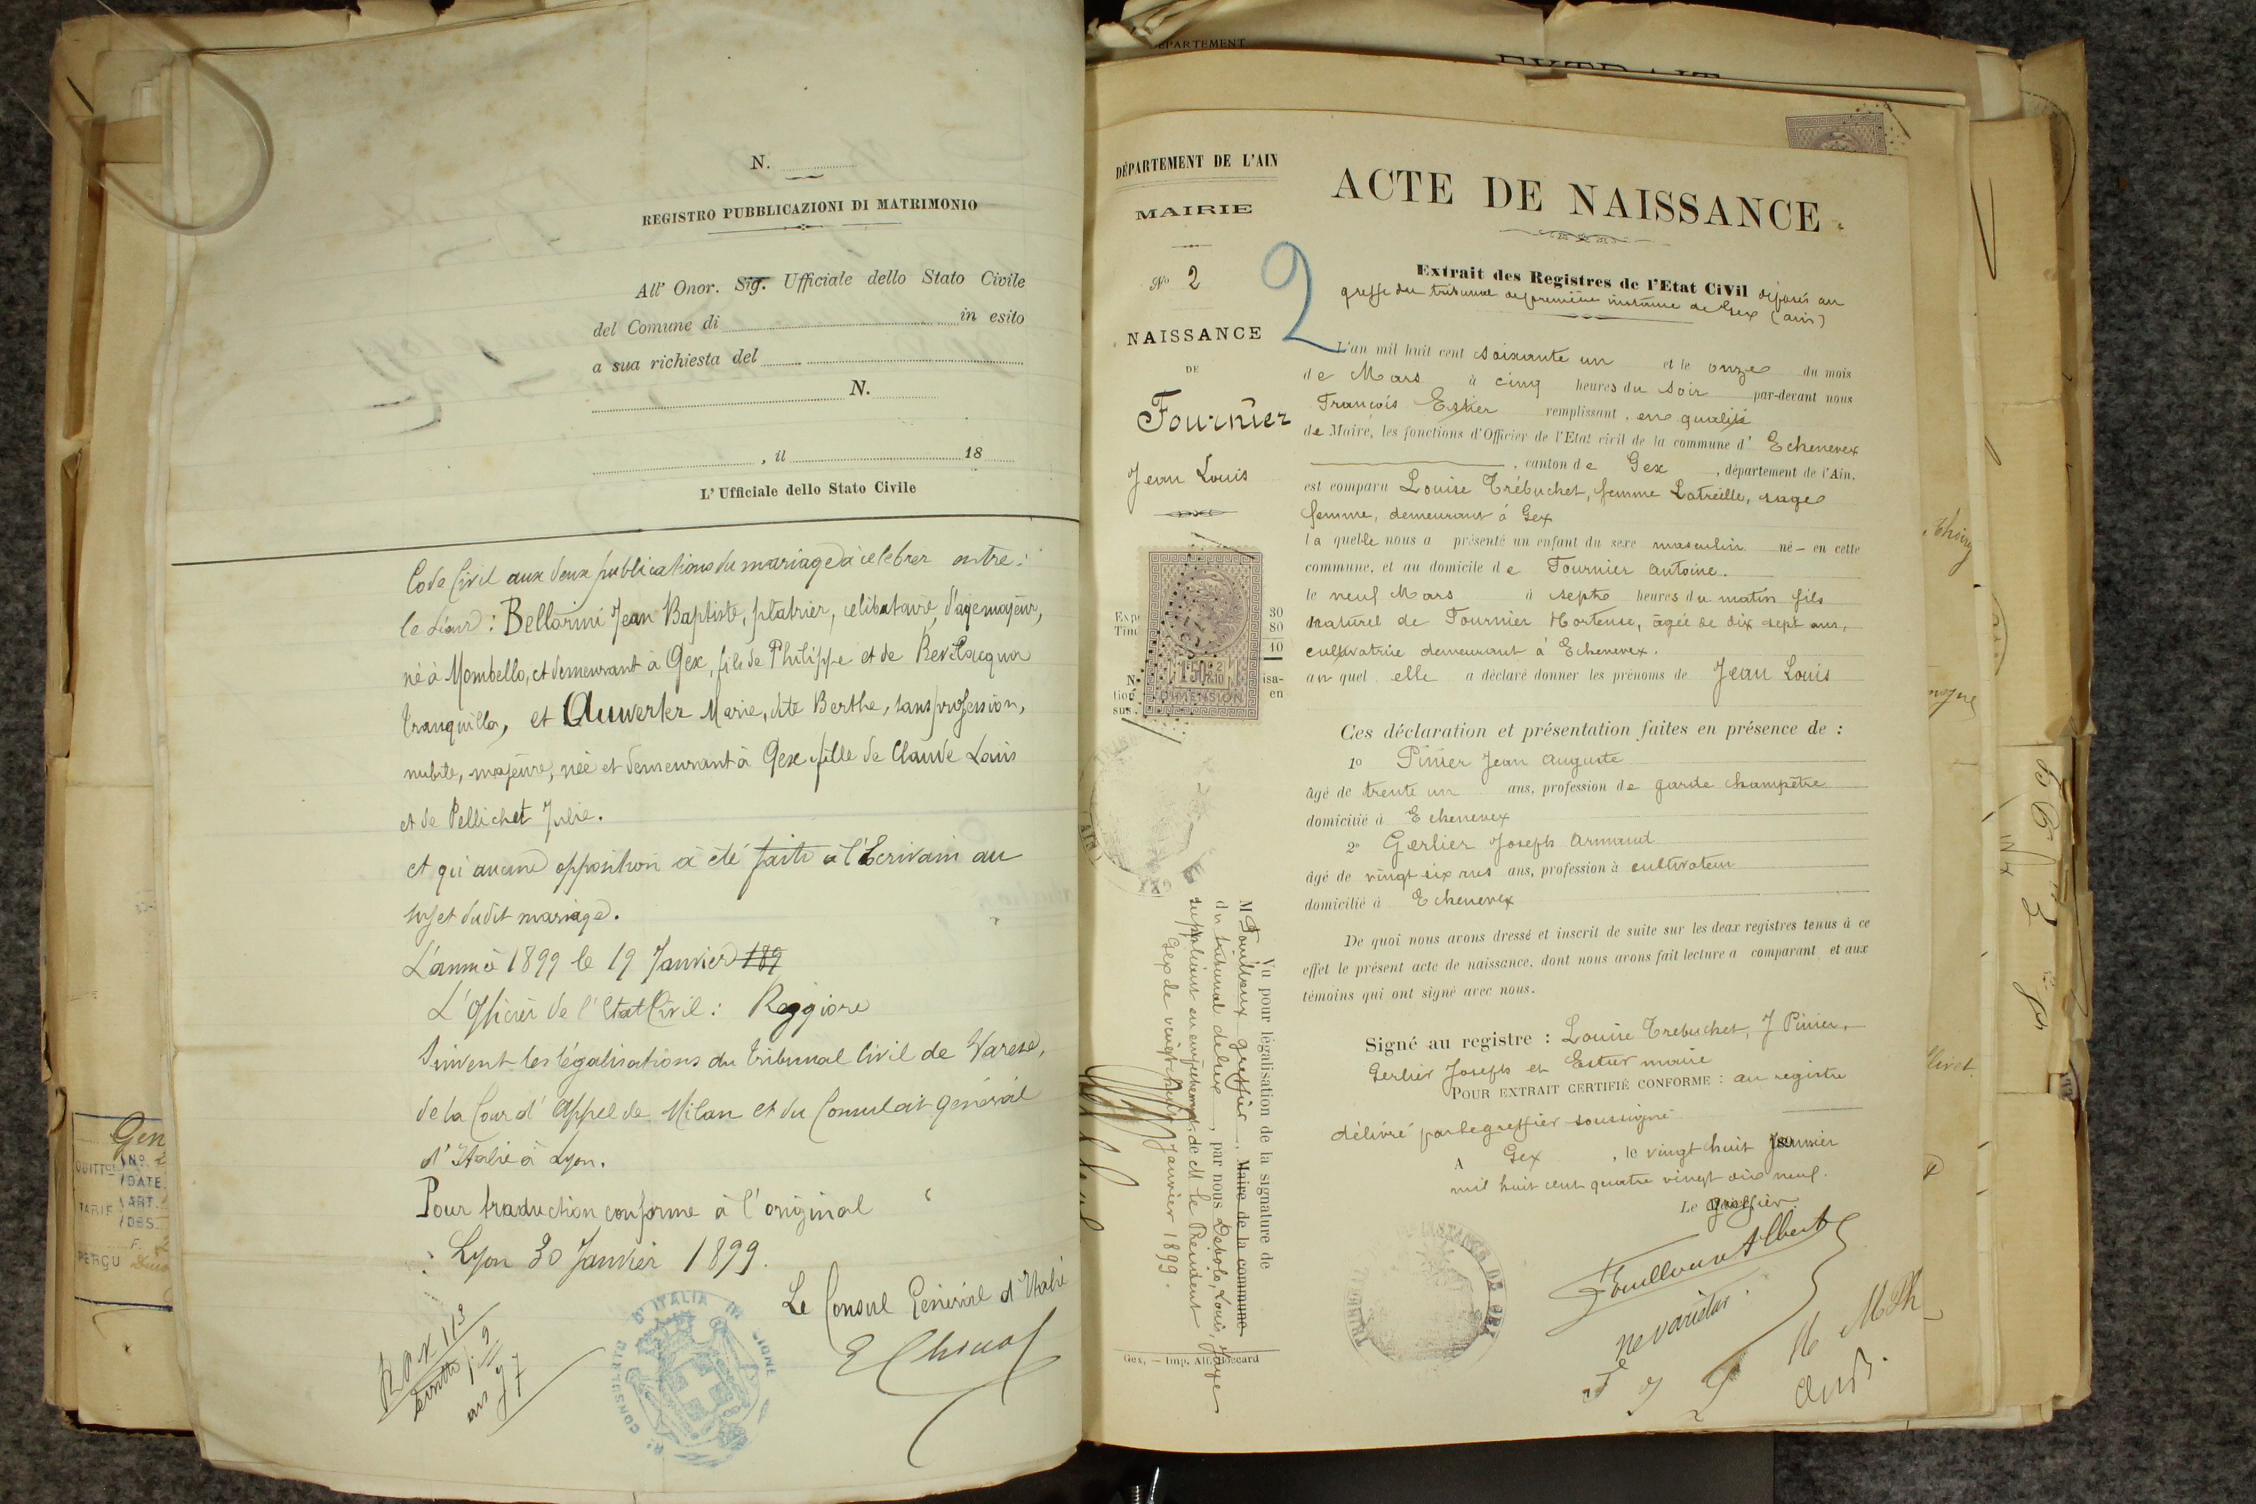 N.
REGISTRO PUBBLICAZIONI DI MATRIMONIO
All' Onor. Sig. Ufficiale dello Stato Civile
del Comune di in esito
a sua richiesta del
N.
, il 18
L'Ufficiale dello Stato Civile
Code Civil aux deux publications du mariage à célébrer entre :
le sieur : Bellorini Jean Baptiste, plâtrier, célibataire, d'âge majeur,
né à Mombello, et demeurant à Gex, fils de Philippe et de Revilacqua
Tranquilla, et Auwerker Marie, dite Berthe, sans profession,
nubile, majeure, née et demeurant à Gex fille de Claude Louis
et de Pellichet Julie.
et qu'aucune opposition a été faite à l'Ecrivain au
sujet dudit mariage.
L'année 1899 le 19 Janvier 189
L'Officier de l'Etat Civil : Reggiore
Suivent les légalisations du Tribunal Civil de Varese,
de la Cour d'Appel de Milan et du Consulat général
d'Italie à Lyon.
Pour traduction conforme à l'original
Lyon 30 Janvier 1899.
Le Consul Général d'Italie
R. CONSOLATO D'ITALIA IN LIONE
Gen
QUITT.
No.
DATE
TARIF
ART.
OBS.
F.
PERÇU
DÉPARTEMENT
EXTRAIT
DÉPARTEMENT DE L'AIN
MAIRIE
No 2
NAISSANCE
DE
Fournier
Jean Louis
30
80
10
1F50c
DIMENSION
2
ACTE DE NAISSANCE
Extrait des Registres de l'Etat Civil déposés au
greffe du tribunal de première instance de Gex (ain)
L'an mil huit cent soixante un et le onze du mois
de Mars à cinq heures du soir par-devant nous
François Estier remplissant, en qualité
de Maire, les fonctions d'Officier de l'Etat civil de la commune d' Echenevex
, canton de Gex , département de l'Ain,
est comparu Louise Trébuchet, femme Latreille, sage
femme, demeurant à Gex
la quelle nous a présenté un enfant du sexe masculin né – en cette
commune, et au domicile de Fournier Antoine.
le neuf Mars à sept heures du matin fils
naturel de Fournier Hortense, âgée de dix sept ans,
cultivatrice demeurant à Echenevex.
au quel elle a déclaré donner les prénoms de Jean Louis
Ces déclaration et présentation faites en présence de :
1o Pinier Jean Auguste
âgé de trente un ans, profession de garde champêtre
domicilié à Echenevex
2o Gerlier Joseph Armand
âgé de vingt six ans ans, profession à cultivateur
domicilié à Echenevex
De quoi nous avons dressé et inscrit de suite sur les deux registres tenus à ce
effet le présent acte de naissance, dont nous avons fait lecture a comparant et aux
témoins qui ont signé avec nous.
Signé au registre : Louise Trebuchet, J Pinier,
Gerlier Joseph et Estier maire
POUR EXTRAIT CERTIFIÉ CONFORME : au registre
délivré par le greffier soussigné
A Gex , le vingt huit Janvier
mil huit cent quatre vingt dix neuf.
Le Greffier
Fouilloux Albert
ne varietur
Vu pour légalisation de la signature de
M Fouilloux greffier, Maire de la commune
du tribunal de Gex, par nous Debolo, Louis, Juge
suppléant en empêchement de M le Président
Gex le vingt huit Janvier 1899.
Gex, – Imp. Alf. Boccard